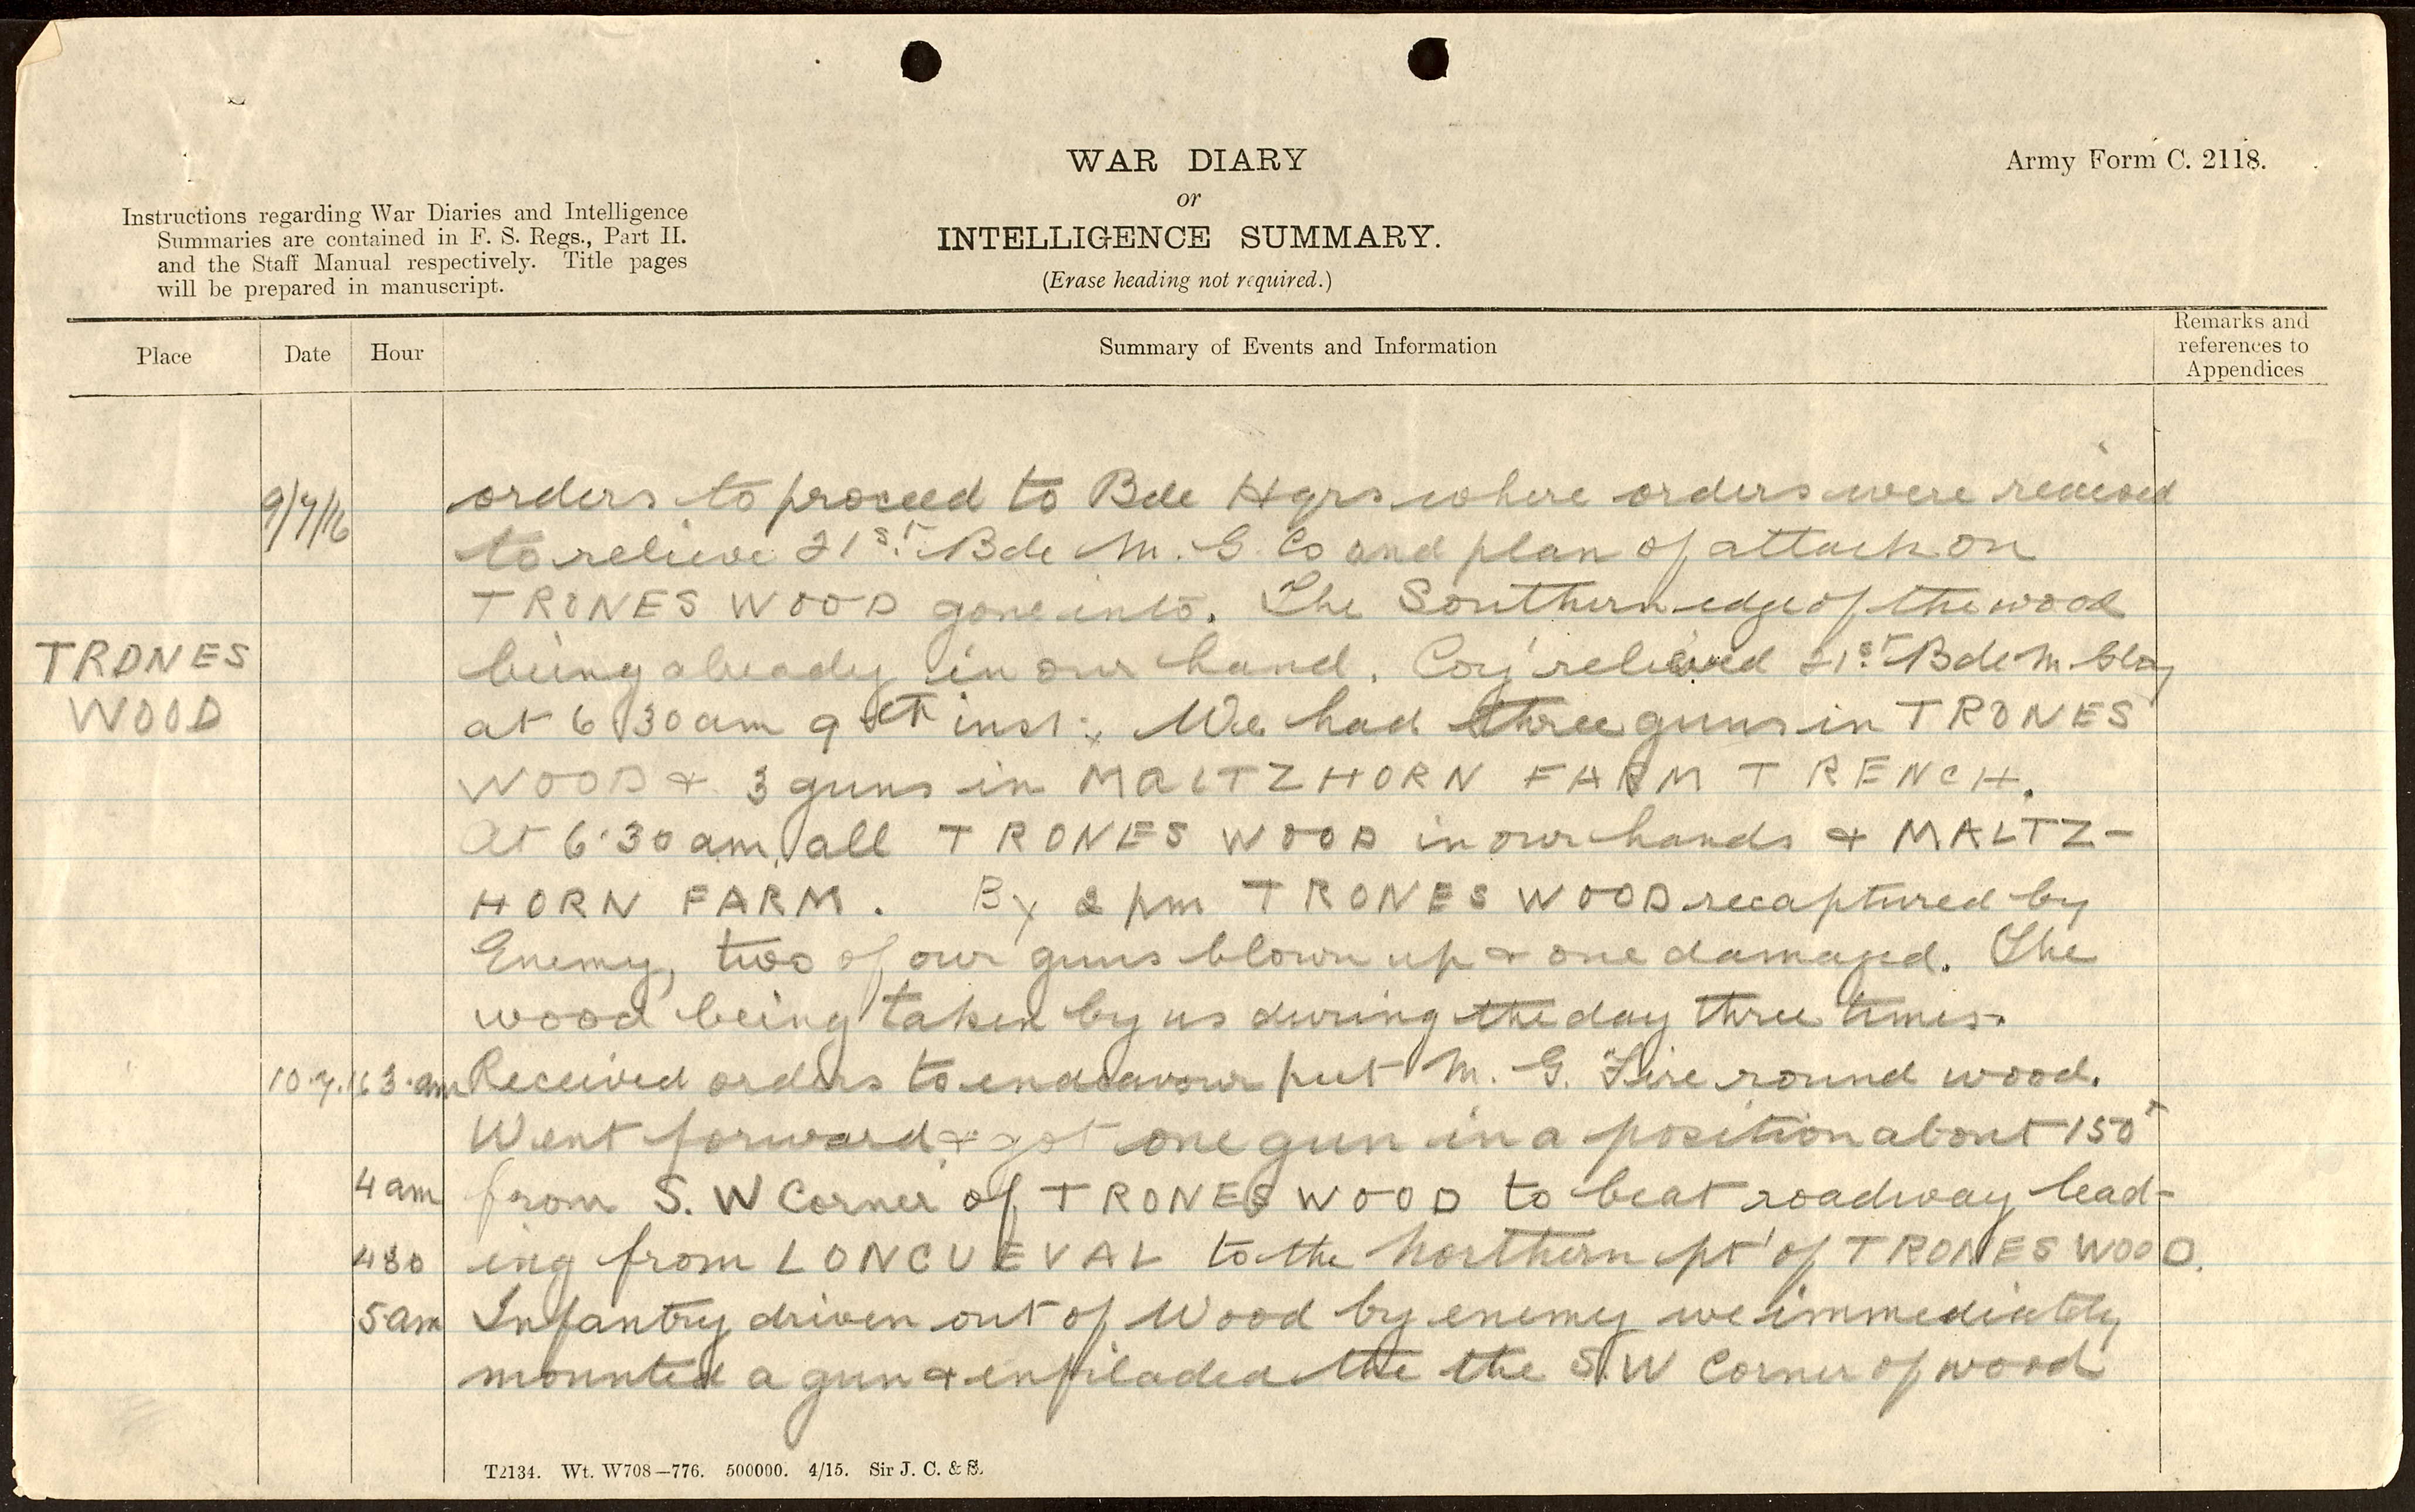 WAR DIARY
or
INTELLIGENCE SUMMARY.
(Erase heading not required.)
Army Form C. 2118.
Instructions regarding War Diaries and Intelligence
Summaries are contained in F. S. Regs., Part II.
and the Staff Manual respectively. Title pages
will be prepared in manuscript.
Place Date Hour Summary of Events and Information Remarks and references to Appendices
9/7/16 orders to proceed to Bde Hqrs where orders were received
to relieve 21st Bde M. G. Co and plan of attack on
TRONES WOOD gone into. The Southern edge of the wood
TRONES being already in our hand. Coy relieved 21st Bde M.
WOOD at 6.30am 9th inst. We had three guns in TRONES
WOOD & 3 guns in MALTZHORN FARM TRENCH.
At 6.30 am, all TRONES WOOD in our hands & MALTZ-
HORN FARM. By 2 pm TRONES WOOD recaptured by
Enemy, two of our guns blown up & one damaged. The
wood being taken by us during the day three times.
10.7.16 3.am Received orders to endeavour put M. G. Fire round wood.
Went forward & got one gun in a position about 150x
4am from S. W Corner of TRONES WOOD to beat roadway lead-
430 ing from LONGUEVAL to the Northern pt of TRONES WOOD.
5am Infantry driven out of Wood by enemy we immediately
mounted a gun & enfiladed the the S.W Corner of wood
T2134. Wt. W708—776. 500000. 4/15. Sir J. C. & S.